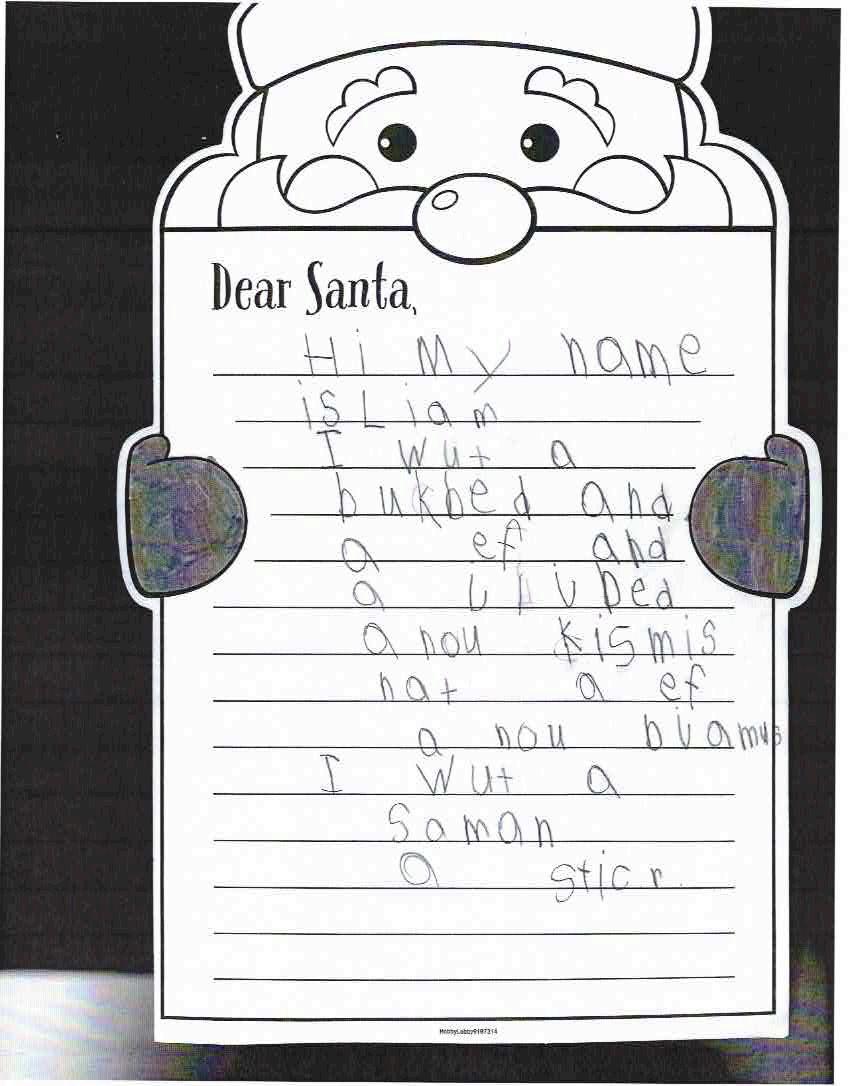 Dear Santa,
Hi My name
is Liam
I wut a
bukbed and
a ef and
a
a nou kismis
hat a ef
a nou
I wut a
Saman
a sticr
HobbyLobby9197314